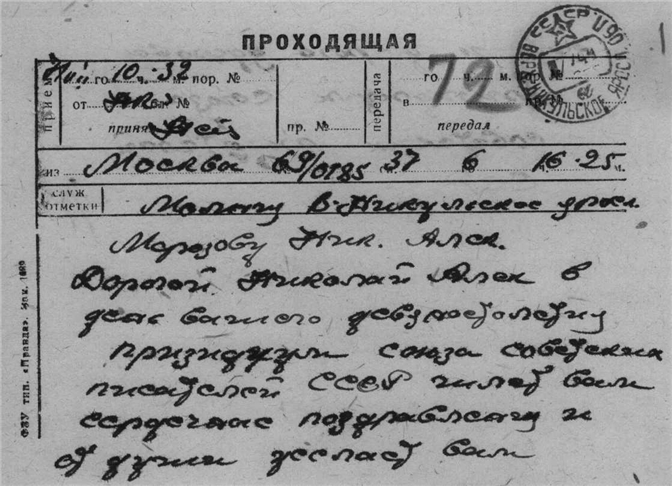 ПРОХОДЯЩАЯ
го 10 ч. 39 м. пор. №
от бл. №
приня
пр. №
прием
передача
72
го ч. м. пор. №
в
передал
СССР
из Москва 69/0785 37 6 16-25 ч.
СЛУЖ. ОТМЕТКИ
Мологу В-Никульское яросл
Морозову Ник. Алек.
Дорогой Николай Алек в
день вашего девяностолетия
призидиум союза советских
писателей СССР шлет вам
сердечные поздравления и
от души желает вам
ФЗУ тип. «Правда». Изм. 1689